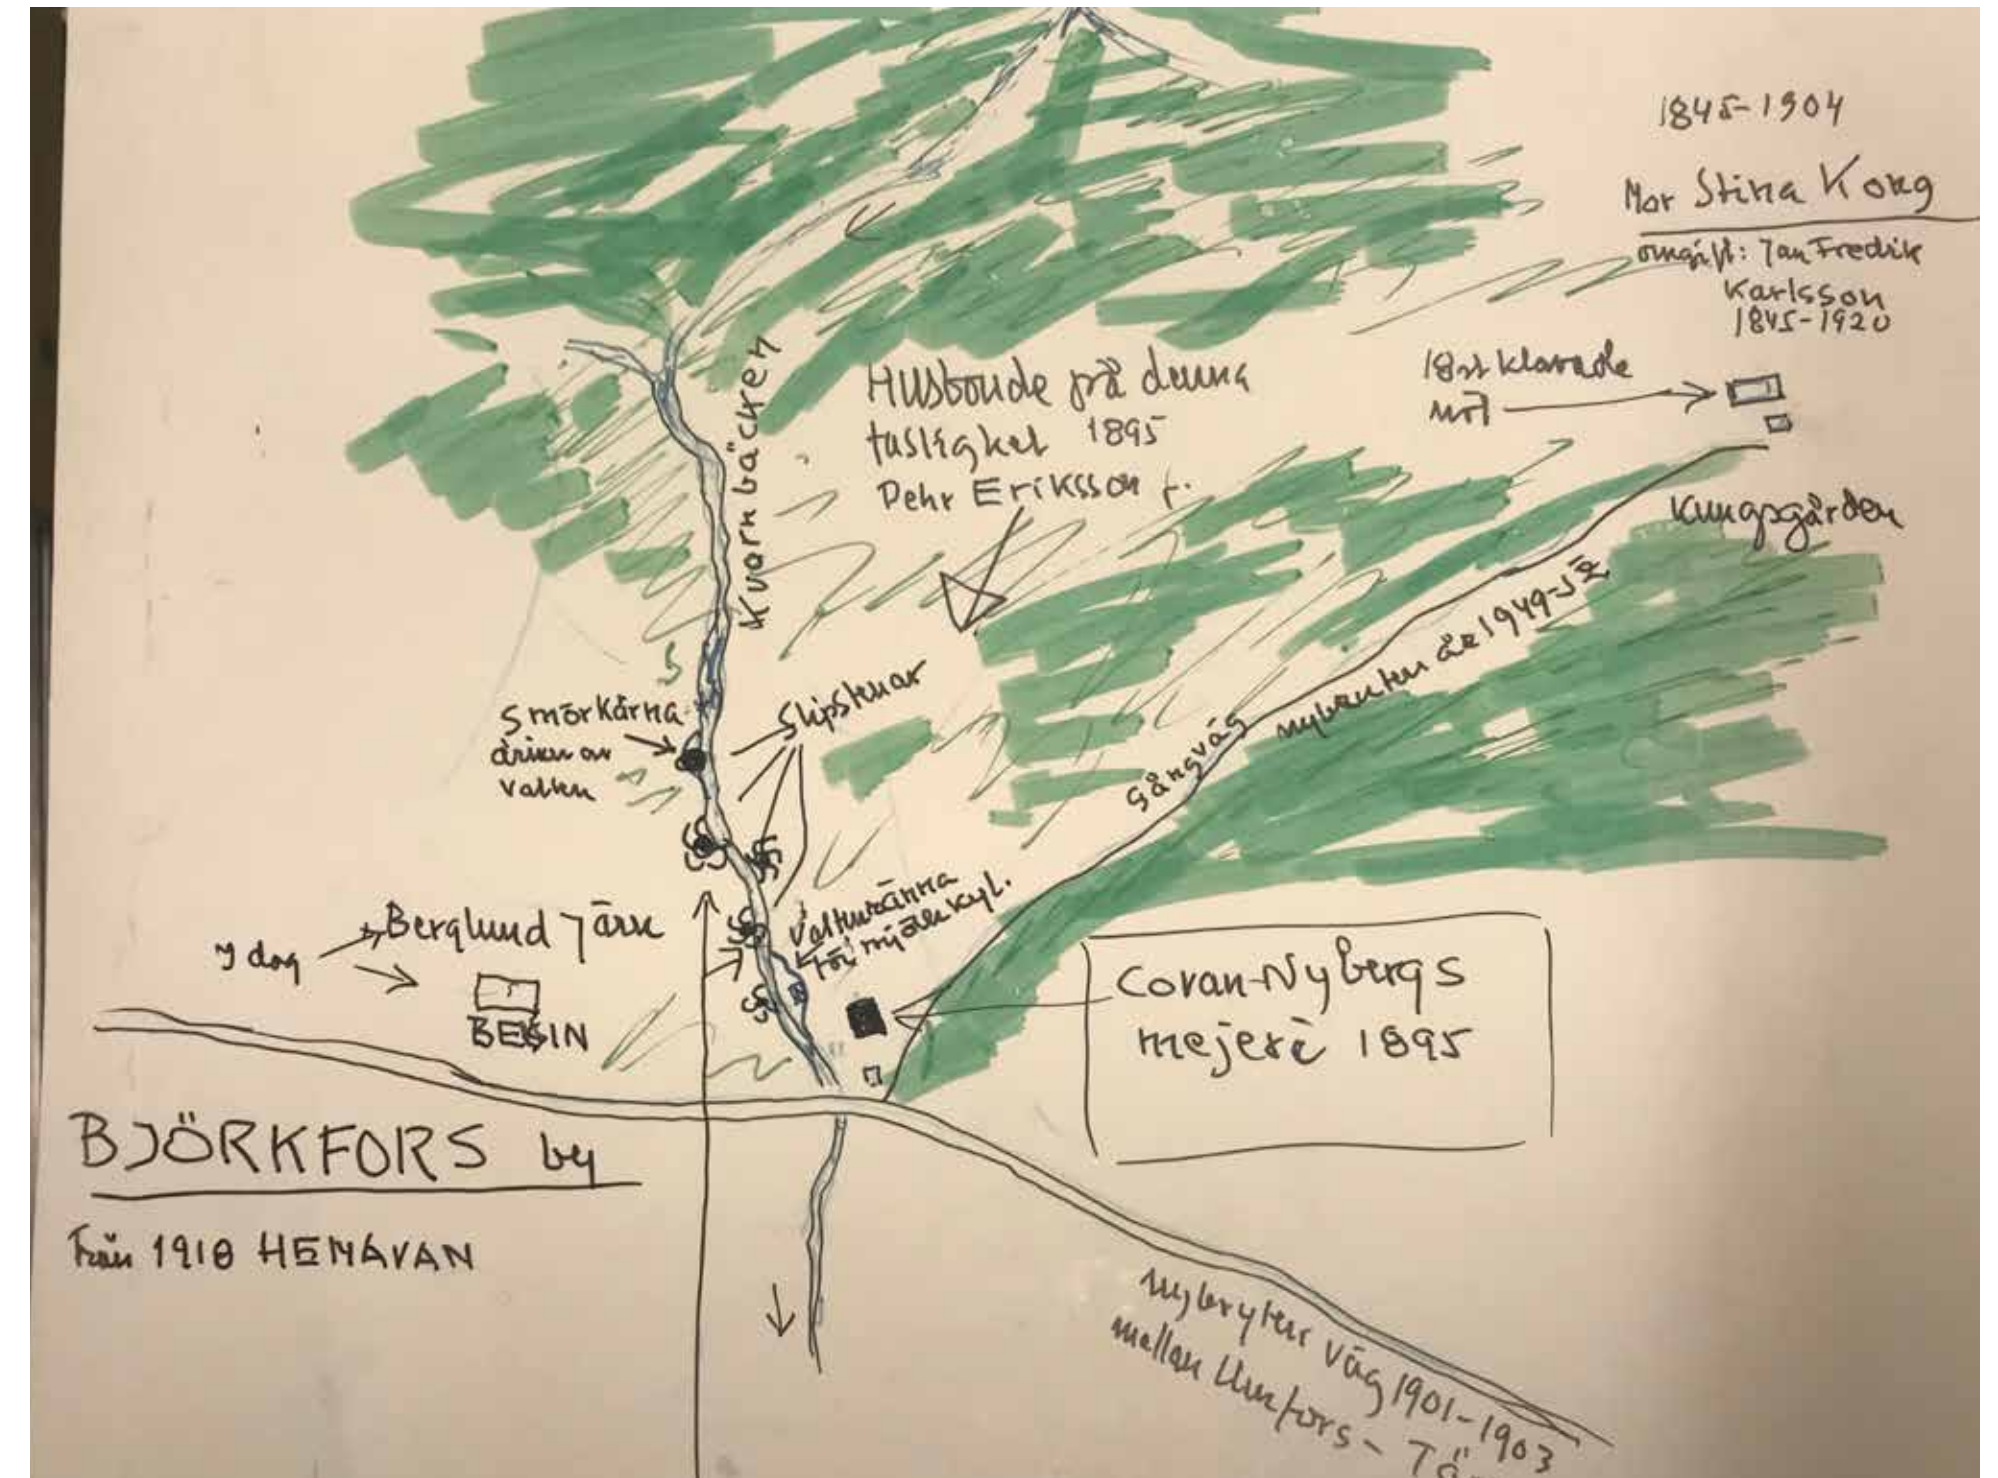 1845-1904
Mor Stina Kong
omgift: Jan Fredrik
Karlsson
1845-1920
nöt
Kungsgården
Husbonde på denna
fastighet 1895
Pehr Eriksson f.
Kvarnbäcken
Smörkärna
driven av
vatten
Slipstenar
Gångväg nybruten år 1949-52
Vattenränna
för mjölkkyl.
Berglund Järn
I dag
BENSIN
Coran-Nybergs
mejeri 1895
BJÖRKFORS by
Från 1918 HEMAVAN
nybryten väg 1901-1903
mellan Umfors - Tär